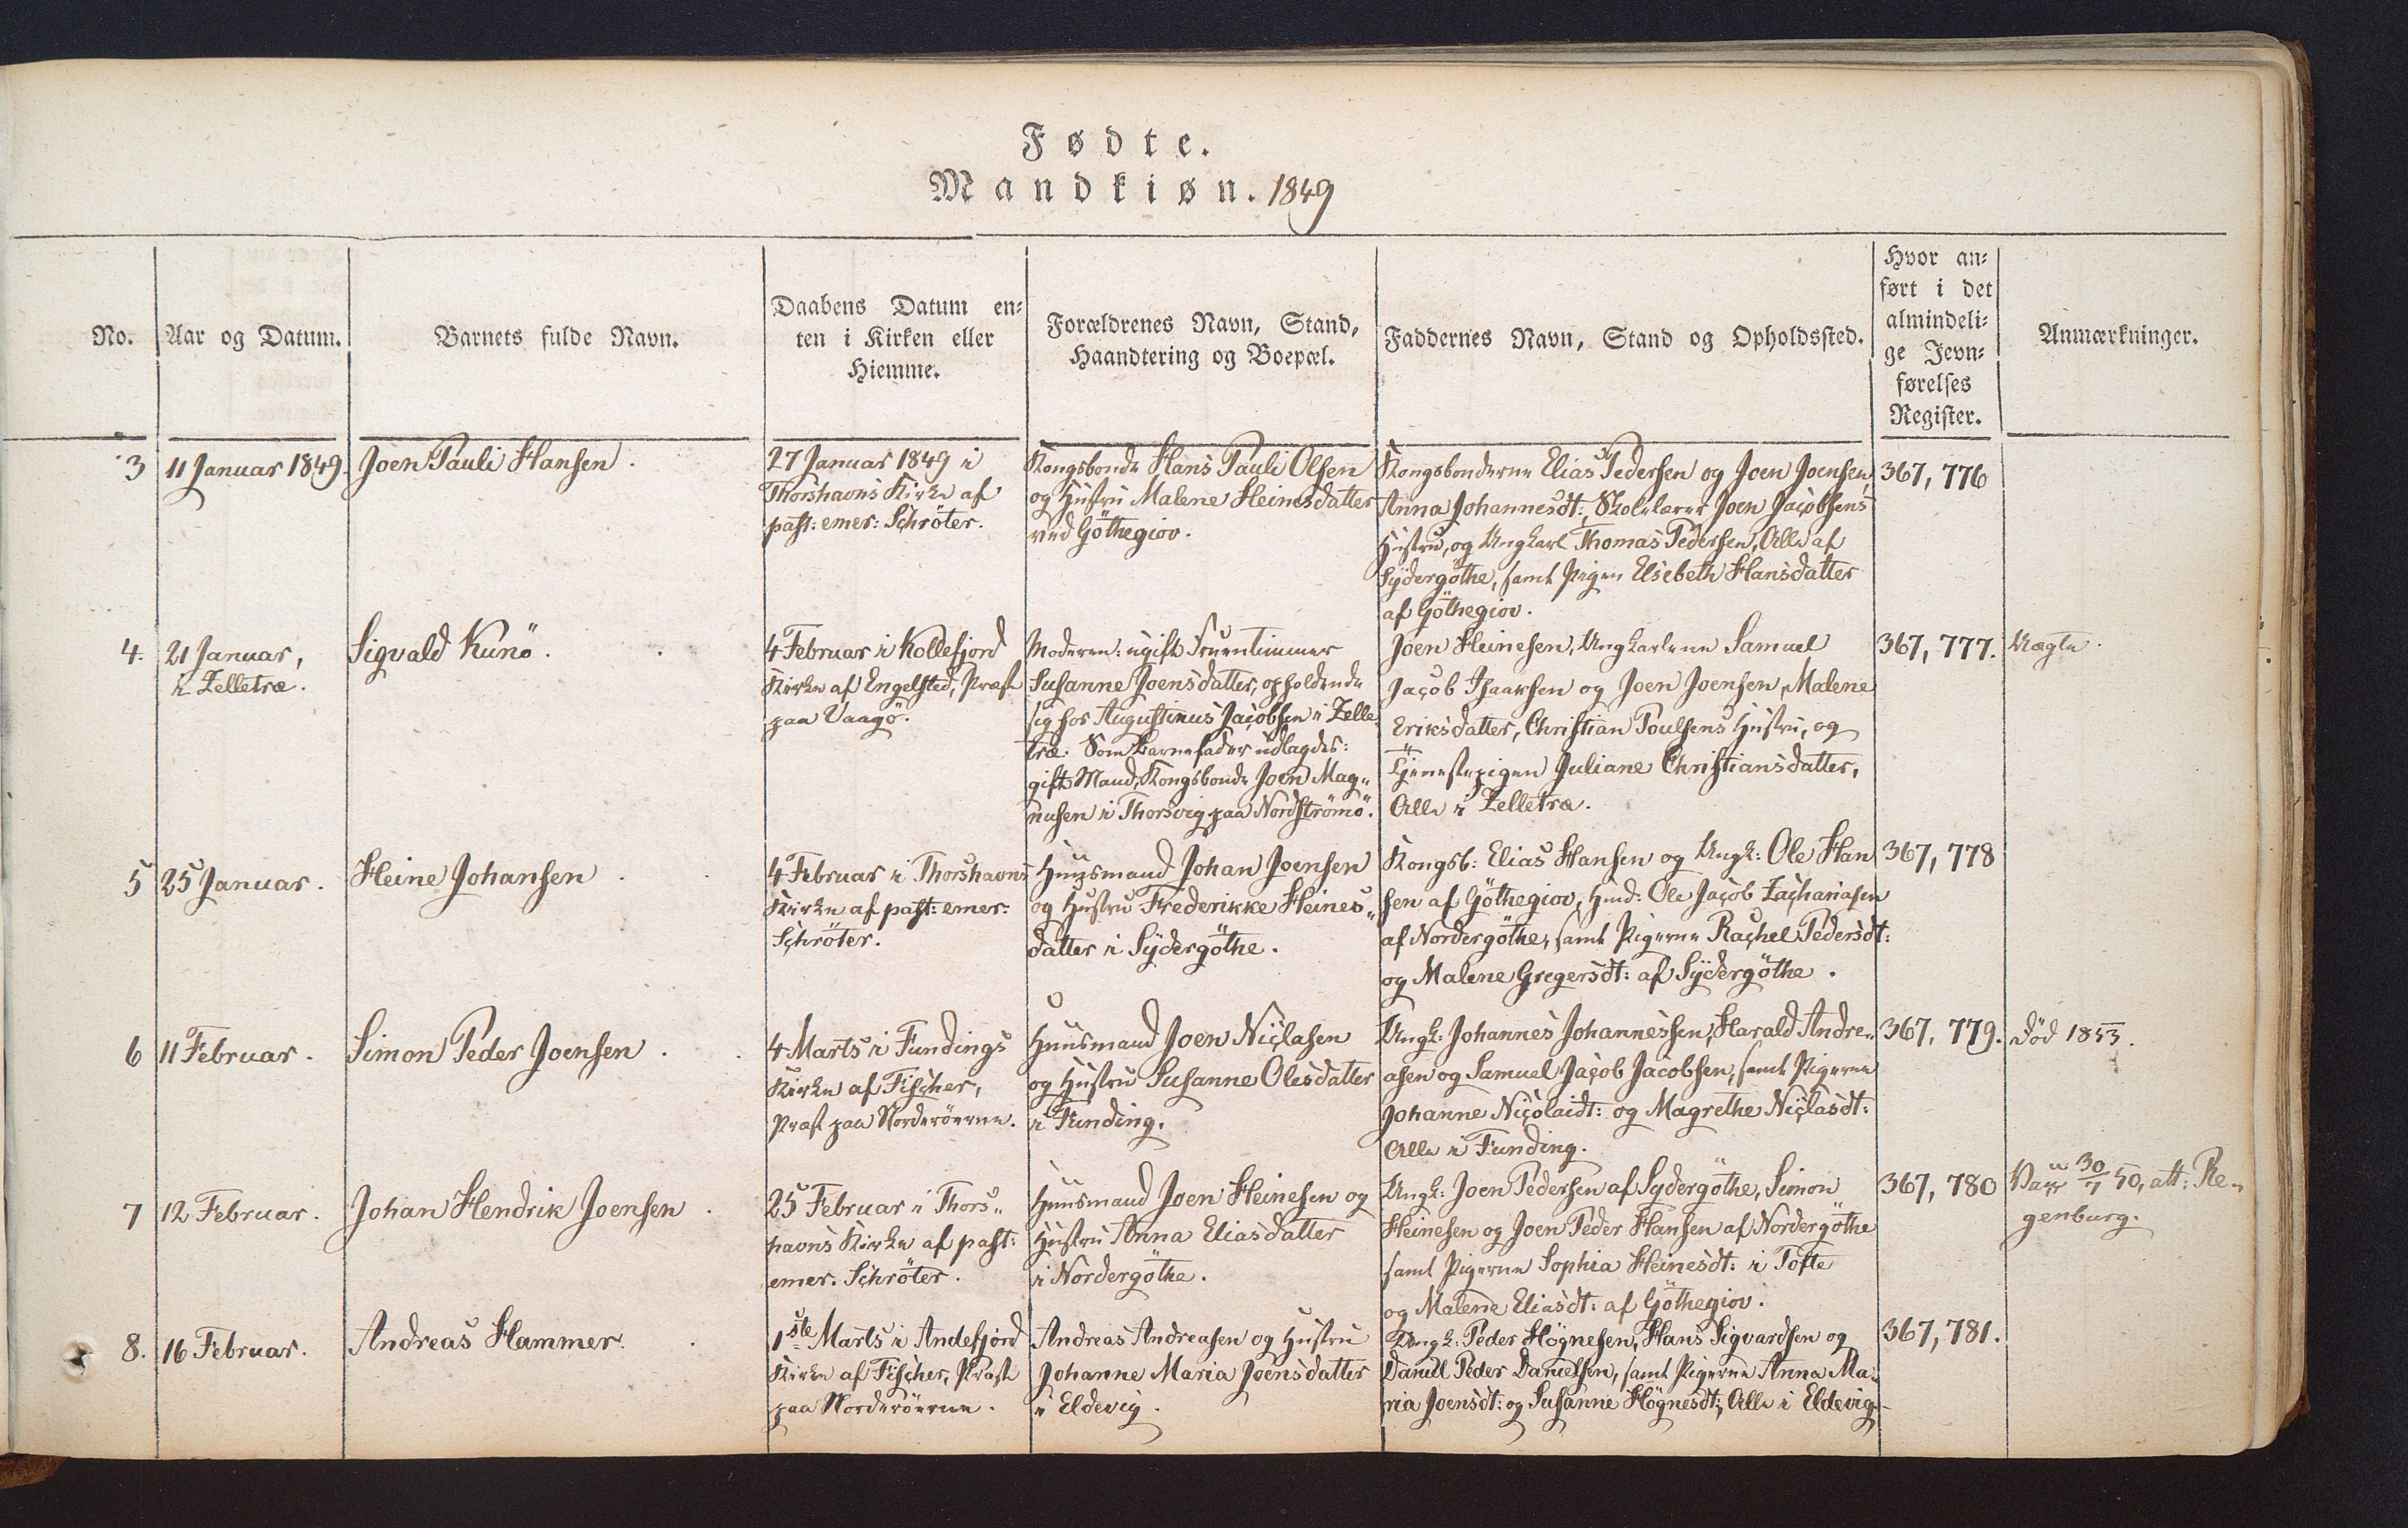 Fødte.
Mandkiøn. 1849
No.
Aar og Datum.
Barnets fulde Navn.
Daabens Datum en=
ten i Kirken eller
Hiemme.
Forældrenes Navn, Stand,
Haandtering og Boepæl.
Faddernes Navn, Stand og Opholdssted.
Hvor an=
ført i det
almindeli=
ge Jevn=
førelses
Register.
Anmærkninger.
3
11 Januar 1849.
Joen Pauli Hansen.
27 Januar 1849 i
Thorshavns Kirke af
past: emer: Schröter.
Kongsbonde Hans Pauli Olsen
og Hustru Malene Heinesdatter
ved Göthegiov.
Kongsbønderne Elias Pedersen og Joen Joensen,
Anna Johannesdt:, Skolelærer Joen Jacobsens
Hustru, og Ungkarl Thomas Pedersen, Alle af
Sydergöthe, samt Pigen Elsebeth Hansdatter
af Göthegiov.
367, 776
4.
21 Januar,
i Zelletræ.
Sigvald Kunö.
4 Februar i Kollefjord
Kirke af Engelsted, Præst
paa Vaagö.
Moderen: ugift Fruentimmer
Susanne Joensdatter, opholdende
sig hos Augustinus Jacobsen i Zelle-
træ. Som Barnefader udlagdes:
gift Mand, Kongsbonde Joen Mag-
nusen i Thorsvig paa Nordströmö.
Joen Heinesen, Ungkarlene Samuel
Jacob Isaaksen og Joen Joensen, Malene
Eriksdatter, Christian Poulsens Hustru, og
Tjenestepigen Juliane Christiansdatter,
Alle i Zelletræ.
367, 777.
Uægte.
5
25 Januar.
Heine Johansen
4 Februar i Thorshavns
Kirke af past: emer:
Schröter.
Huusmand Johan Joensen
og Hustru Frederikke Heines-
datter i Sydergöthe.
Kongsb: Elias Hansen og Ungk: Ole Han
sen af Göthegiov, Hmd: Ole Jacob Zachariasen
af Nordergöthe, samt Pigerne Rachel Pedersdt:
og Malene Gregersdt: af Sydergöthe.
367, 778
6
11 Februar.
Simon Peder Joensen.
4 Marts i Fundings
Kirke af Fischer,
Præst paa Norderöerne.
Huusmand Joen Niclasen
og Hustru Susanne Olesdatter
i Funding.
Ungk: Johannes Johannessen, Harald Andre-
asen og Samuel Jacob Jacobsen, samt Pigerne
Johanne Nicolaidt: og Magrethe Niclasdt:
Alle i Funding.
367, 779.
Död 1853.
7
12 Februar.
Johan Hendrik Joensen.
25 Februar i Thors-
havns Kirke af past:
emer. Schröter.
Huusmand Joen Heinesen og
Hustru Anna Eliasdatter
i Nordergöthe.
Ungk: Joen Pedersen af Sydergöthe, Simon
Heinesen og Joen Peder Hansen af Nordergöthe
samt Pigerne Sophia Heinesdt: i Tofte
og Malene Eliasdt: af Göthegiov.
367, 780
30/7 50, att: Re-
genburg.
8.
16 Februar.
Andreas Hammer.
1ste Marts i Andefjord
Kirke af Fischer, Præst
paa Norderöerne.
Andreas Andreasen og Hustru
Johanne Maria Joensdatter
i Eldevig.
Ungk: Peder Högnesen, Hans Sigvardsen og
Daniel Peder Danielsen, samt Pigerne Anna Ma-
ria Joensdt: og Susanne Högnesdt:, Alle i Eldevig.
367, 781.